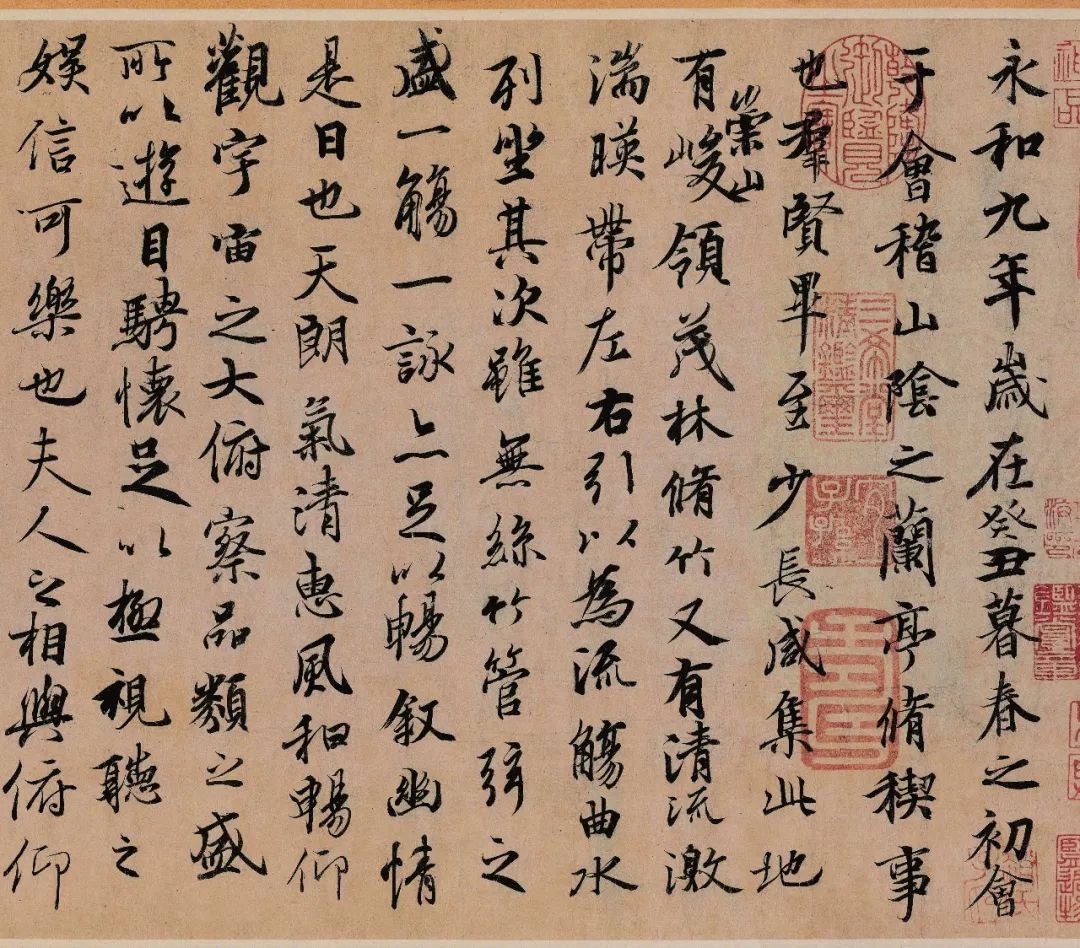 永和九年歲在癸丑暮春之初會
于會稽山陰之蘭亭脩稧事
也羣賢畢至少長咸集此地
有崇山峻領茂林脩竹又有清流激
湍暎帶左右引以為流觴曲水
列坐其次雖無絲竹管弦之
盛一觴一詠亦足以暢敘幽情
是日也天朗氣清惠風和暢仰
觀宇宙之大俯察品類之盛
所以遊目騁懷足以極視聽之
娛信可樂也夫人之相與俯仰
神品